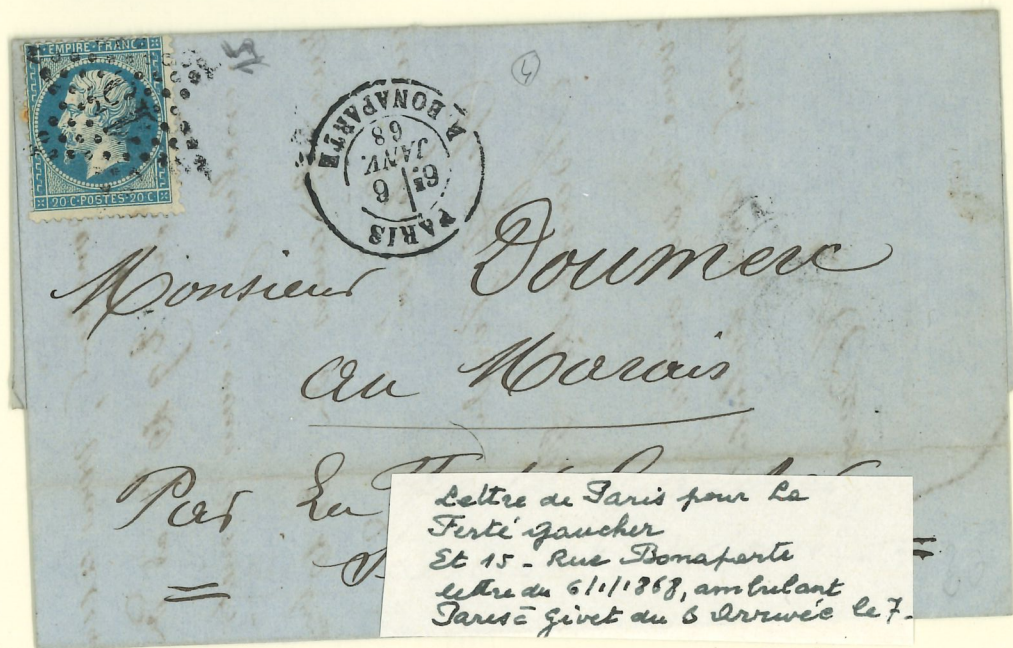 EMPIRE FRANC
20 C · POSTES · 20 C
15
4
PARIS
6E
6
JANV.
68
R. BONAPARTE
Monsieur Doumerc
au Marais
Par La
Lettre de Paris pour La
Ferté Gaucher
Et 15 - Rue Bonaparte
lettre du 6/1/1868, ambulant
Paris = Givet du 6 Arrivée le 7.